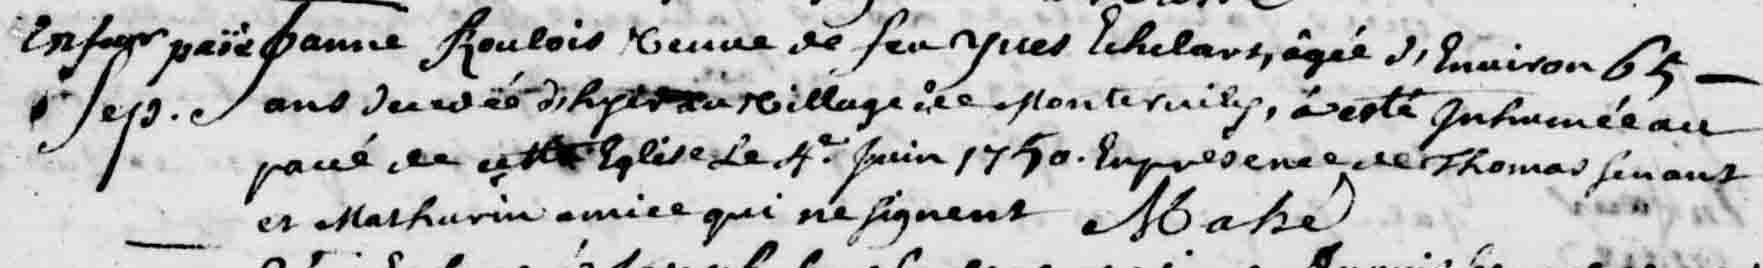 païé Janne Roulois Veuve de feu Yves Echelart, âgée d'Environ 65 —
Sep. ans decedée d'hyer au Village de, a esté Inhumée au
pavé de cette Eglise Le 4e. Juin 1750. En presence de Thomas
et Mathurin amice qui ne signent Mahé